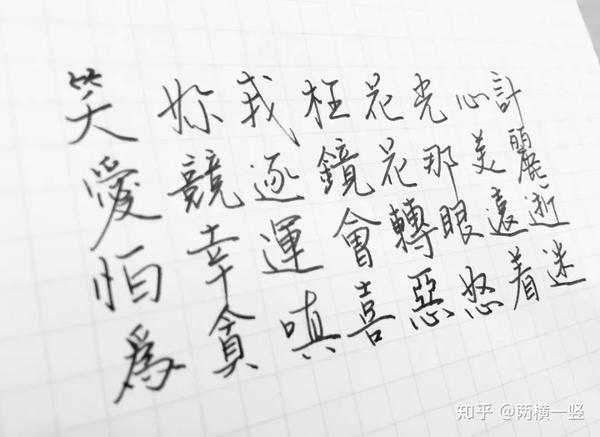 笑妳我枉花光心計
愛競逐鏡花那美麗
怕幸運會轉眼遠逝
為貪嗔喜惡怒着迷
知乎 @两横一竖